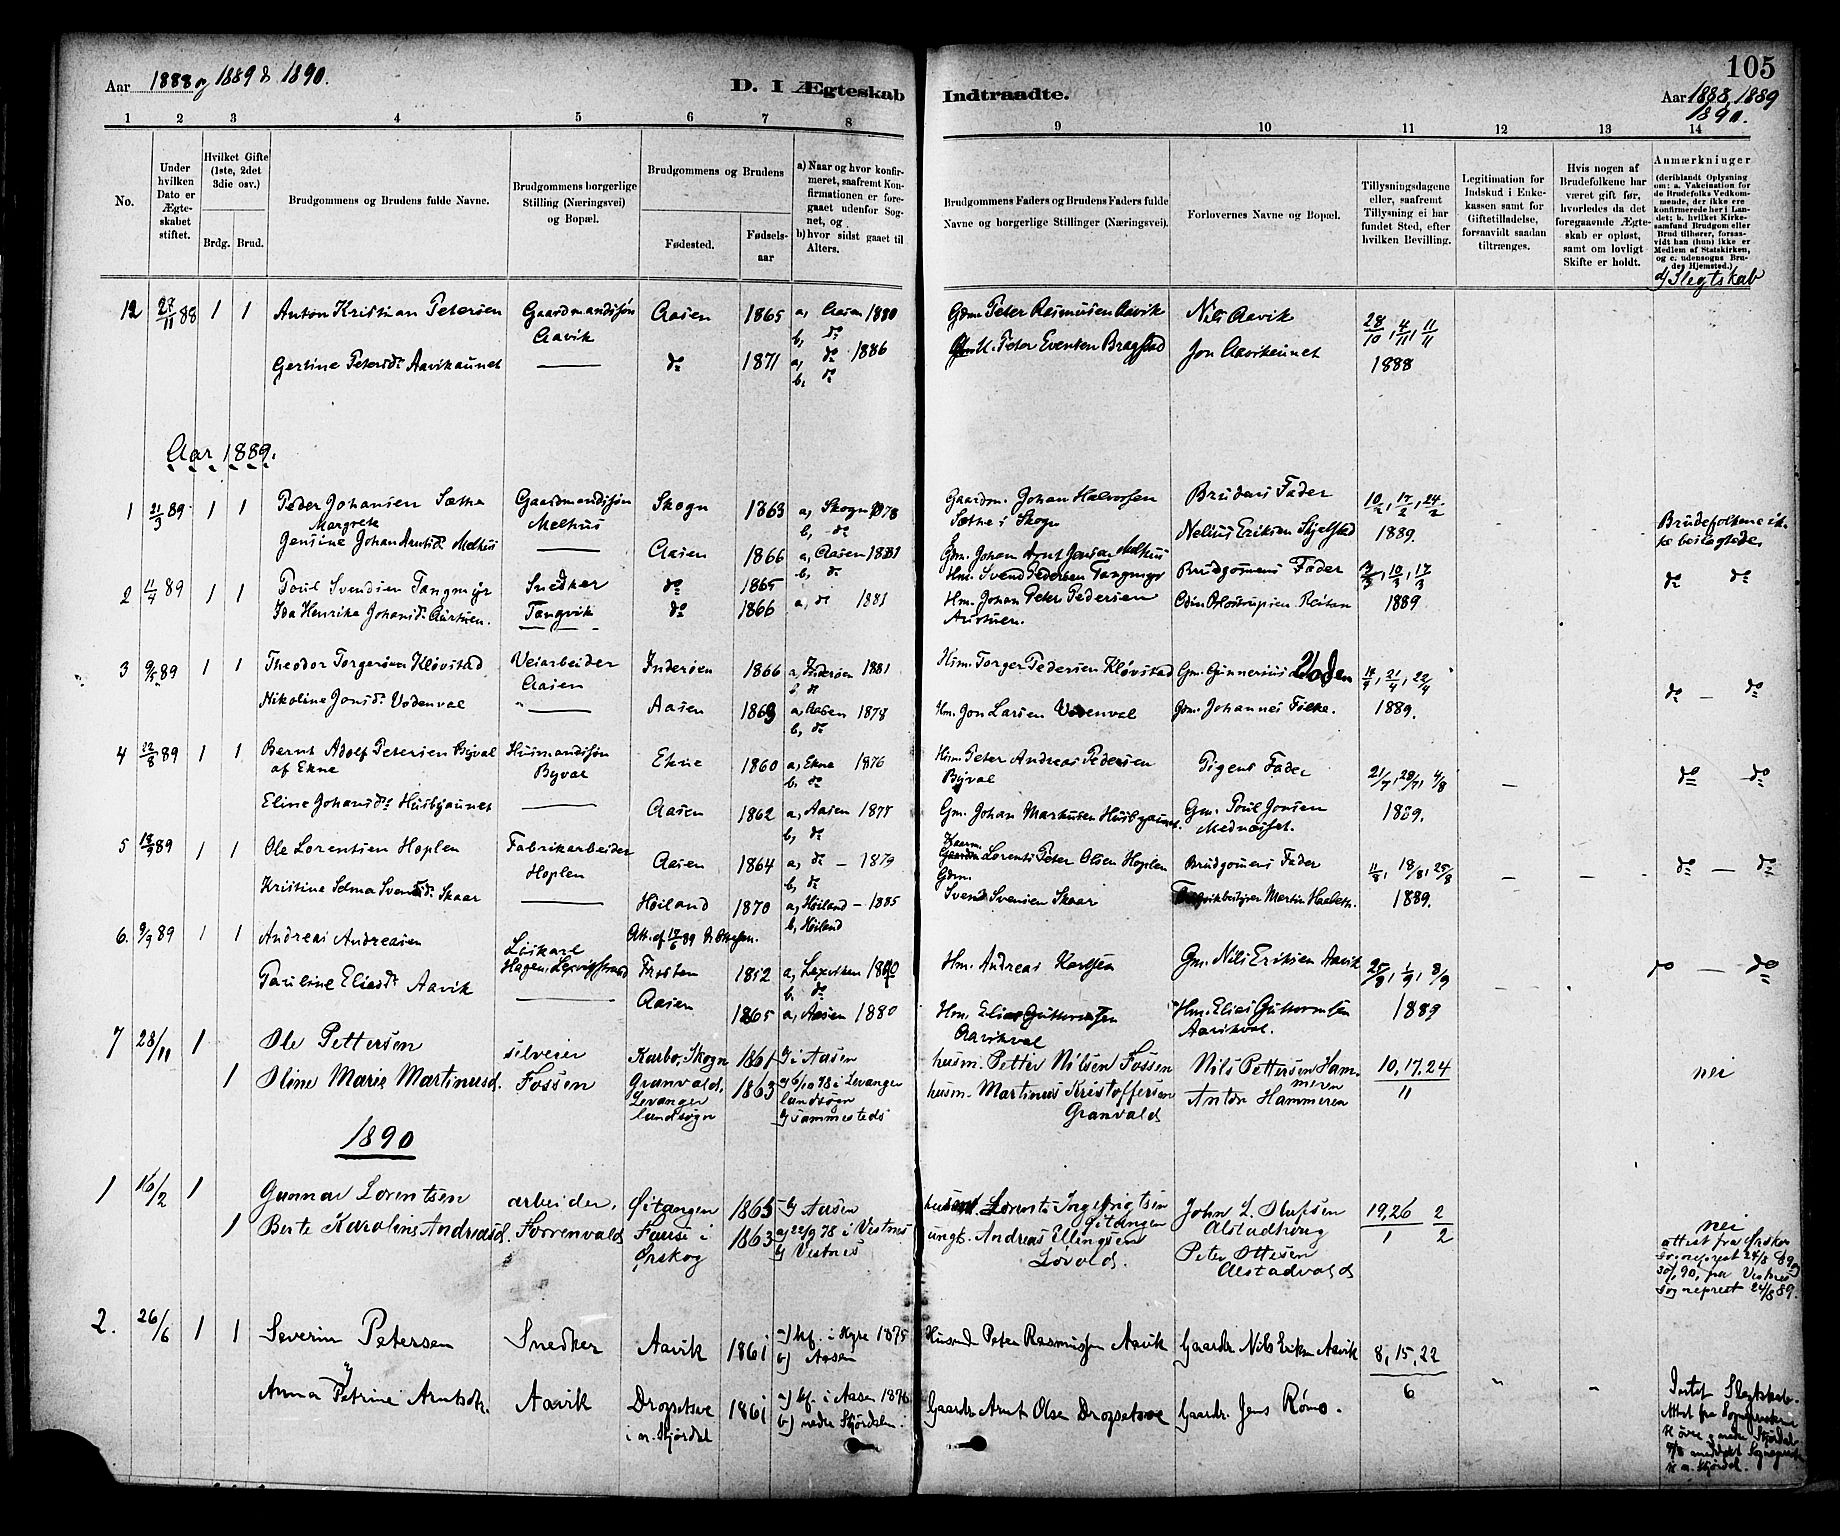 105
Aar 1888 og 1889 & 1890.
D. I Ægteskab Indtraadte.
Aar 1888, 1889
1890.
1 2 3 4 5 6 7 8 9 10 11 12 13 14
No.
Under hvilken Dato er Ægteskabet stiftet.
Hvilket Gifte (1ste, 2det 3die osv.)
Brdg. Brud.
Brudgommens og Brudens fulde Navne.
Brudgommens borgerlige Stilling (Næringsvei) og Bopæl.
Brudgommens og Brudens
Fødested.
Fødsels-aar
a) Naar og hvor konfirmeret, saafremt Konfirmationen er foregaaet udenfor Sognet, og
b) hvor sidst gaaet til Alters.
Brudgommens Faders og Brudens Faders fulde Navne og borgerlige Stillinger (Næringsvei).
Forlovernes Navne og Bopæl.
Tillysningsdagene eller, saafremt Tillysning ei har fundet Sted, efter hvilken Bevilling.
Legitimation for Indskud i Enkekassen samt for Giftetilladelse, forsaavidt saadan tiltrænges.
Hvis nogen af Brudefolkene har været gift før, hvorledes da det foregaaende Ægteskab er opløst, samt om lovligt Skifte er holdt.
Anmærkninger (deriblandt Oplysning om: a. Vakcination for de Brudefolks Vedkommende, der ikke ere konfirmerede her i Landet; b. hvilket Kirkesamfund Brudgom eller Brud tilhører, forsaavidt han (hun) ikke er Medlem af Statskirken, og c. udensogns Brudes Hjemsted.)
d) Slegtskab
12 27/11 88 1 1 Anton Kristian Petersen Gaardmandssøn Aavik Aasen 1865 a, Aasen 1880 b, do Gdm. Peter Rasmussen Aavik Nils Aavik 28/10, 4/11, 11/11
Gertine Petersdr Aavikaunet do 1871 a, do 1886 b, do Peter Evensen Bragstad Jon Aavikaunet 1888
Aar 1889.
1 21/3 89 1 1 Peder Johansen Sætne Gaardmandssøn Melhus Skogn 1863 a, Skogn 1878 b, do Gaardm. Johan Halvorsen Sætne i Skogn Brudens Fader 10/2, 17/2, 24/2
Jensine Margrete Johan Arntsdr Melhus Aasen 1866 a, Aasen 1881 b, do Gdm. Johan Arnt Jensen Melhus Nelius Eriksen Skjelstad 1889. Brudefolkene ikke beslegtede.
2 11/4 89 1 1 Poul Svendsen Tangmyr Snedker do 1865 Hm. Svend Pedersen Tangmyr Brudgomens Fader 3/3, 10/3, 17/3 do do
Ida Henrika Johansdr Aastuen. Tangvik do 1866 a, do 1881 Hm. Johan Peter Pedersen Austuen. Reitan 1889.
3 9/5 89 1 1 Theodor Torgersen Kløvstad Veiarbeider Aasen Inderøen 1866 a, Inderøen 1881 b, do Hsm. Torger Pedersen Kløvstad Gm. Gunnerius Voden 14/4, 21/4, 22/4
Nikoline Jonsdr Vodenval " Aasen 1863 a, Aasen 1878 b, do Hm. Jon Larsen Vodenval Gm. Johannes Folke. 1889. do — do
4 22/8 89 1 1 Bernt Adolf Petersen Byval af Ekne Husmandssøn Byval Ekne 1860 a, Ekne 1876 b, do Hsm. Peter Andreas Pedersen Byval Pigens Fader 21/7, 28/7, 4/8 do do
Eline Johansdr Husbyaunet Aasen 1862 a, Aasen 1877 b, do Gm. Johan Markusen Husbyaunet. Gm. Poul Jonsen Mednæsset. 1889.
5 18/9 89 1 1 Ole Lorentsen Hoplen Fabrikarbeider Hoplen Aasen 1864 a, do — 1879 b, do Lorents Peter Olsen Hoplen Brudgomens Fader 11/8, 18/8, 25/8 do — do
Kristine Selma Svendsdr Skaar Høiland 1870 a, Høiland — 1885 b, Høiland Gdm. Svend Svensen Skaar Fabrikbestyrer Martin 1889.
6. 9/9 89 1 1 Andreas Andreasen Løskarl Hagen, Lexvigstrand Frosten 1852 a, Lexviken b, do Hm. Andreas Karlsen Gm. Nils Eriksen Aavik 25/8, 1/9, 8/9 do — do
Pauline Eliasdr Aavik Aasen 1865 a, Aasen 1880 Hm. Elias Guttormsen Aavikval Hm. Elias Guttormsen Aavikval. 1889
7 28/11 1 Ole Pettersen selveier Karbo, Skogn 1861 b) i Aasen husm. Petter Nilsen Fossen Nils Pettersen Hammeren 10, 17, 24/11 nei
1 Oline Marie Martinusd. Fossen Granvald, Levanger landsogn 1863 a) 6/10 78 i Levanger landsogn b) sammesteds husm. Martinus Kristoffersen Granvald Anton Hammeren
1890
1 16/2 1 Gunnar Lorentsen arbeider, Øitangen 1863 b) Aasen husm. Lorents Ingebrigtsen Øitangen John L. Olufsen Alstadhoug 19,26/1 2/2 nei
1 Berte Karoline Andreasd. Forrenvald Fause i Ørskog 1863 a) 22/9 78 i Vestnes b) Vestnes ungk. Andreas Ellingsen Løvold. Peter Ottesen Alstadvald attest fra Ørskog sogneprest 24/8 89 og 30/1 90, fra Vestnes sogneprest 24/8 89.
2. 26/6 1 1 Severin Petersen Snedker Aavik 1861 a) kf. i 1875 b) Aasen Husmd Peter Rasmussen Aavik Gaardr. Nils Eriksen Aavik 8, 15, 22/6
Anna Petrine Arntsdtr. Aavik Dropsetsve i n. Stjørdal 1861 a) kf. i Aasen 1876 b) nedre Stjørdalen. Gaardr. Arnt Olsen Dropsetsve Gaardr. Jens Rømo. " " Intet Slegtskab. Attest fra